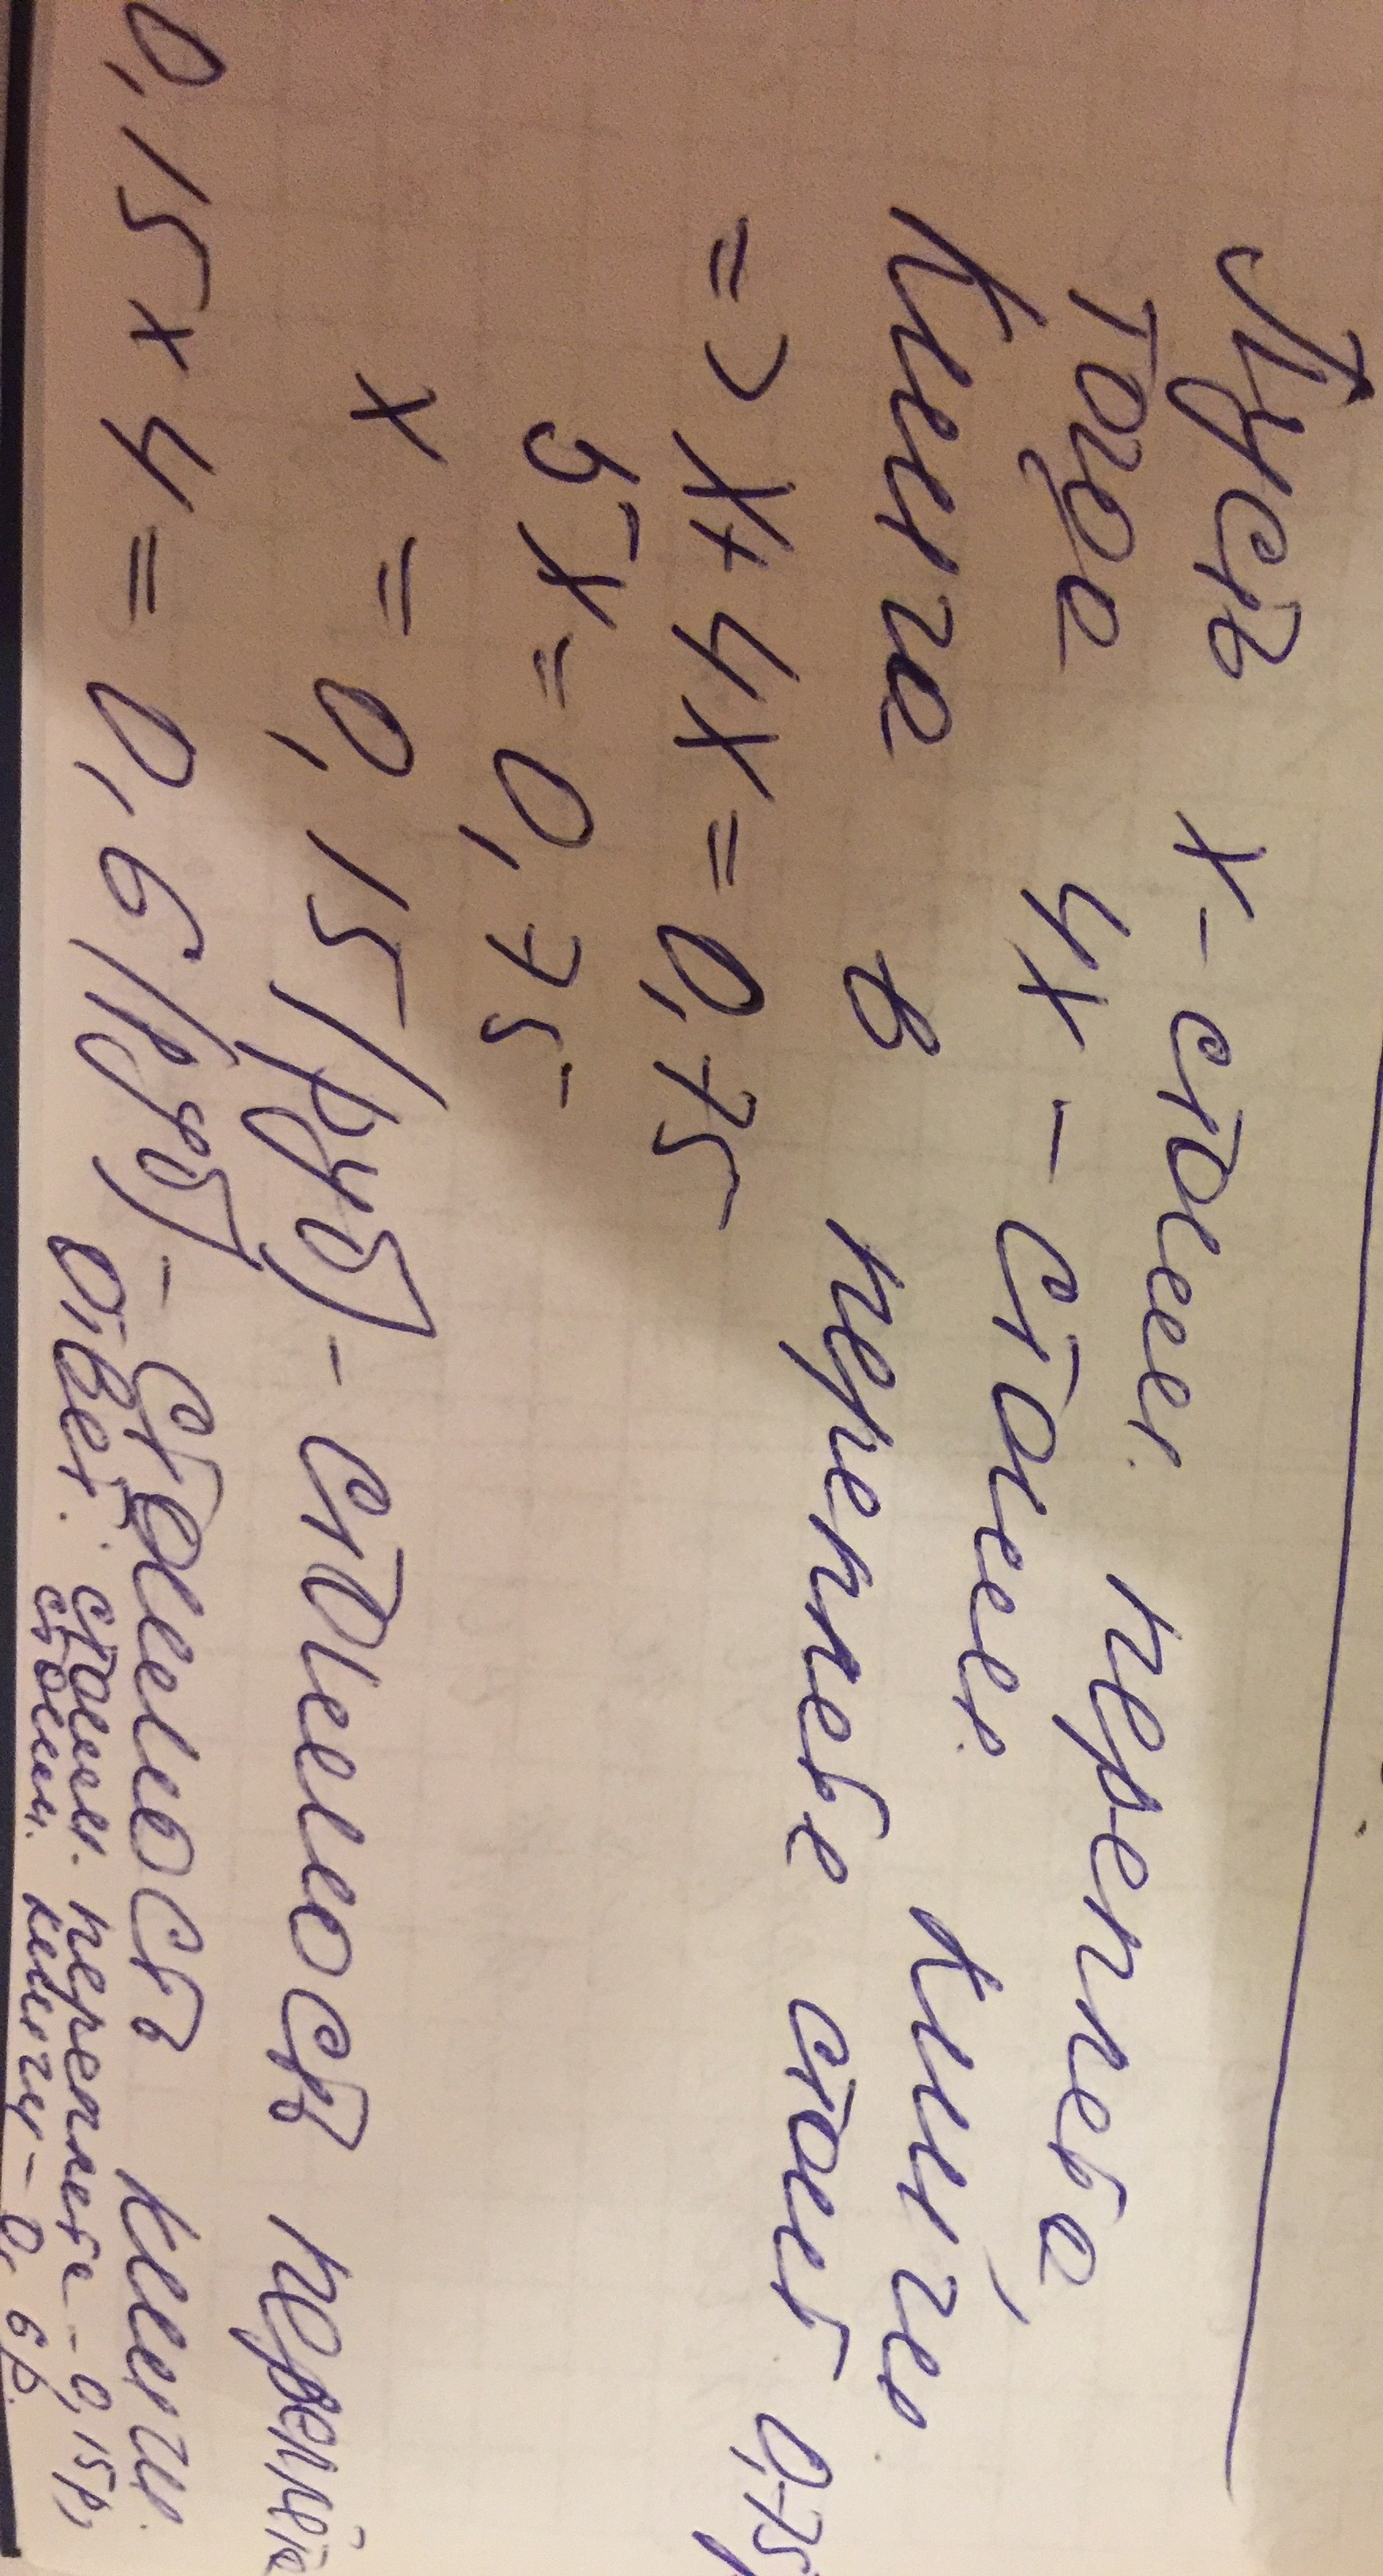 Пусть x - стоим. переплёта,
тогда 4x - стоим. книги
Книга в переплёте стоит 0,75
=> x + 4x = 0,75
5x = 0,75
x = 0,15 (руб) - стоимость переплёта
0,15 x 4 = 0,6 (руб) - стоимость книги.
Ответ: стоим. переплёта - 0,15р,
стоим. книги - 0,6р.